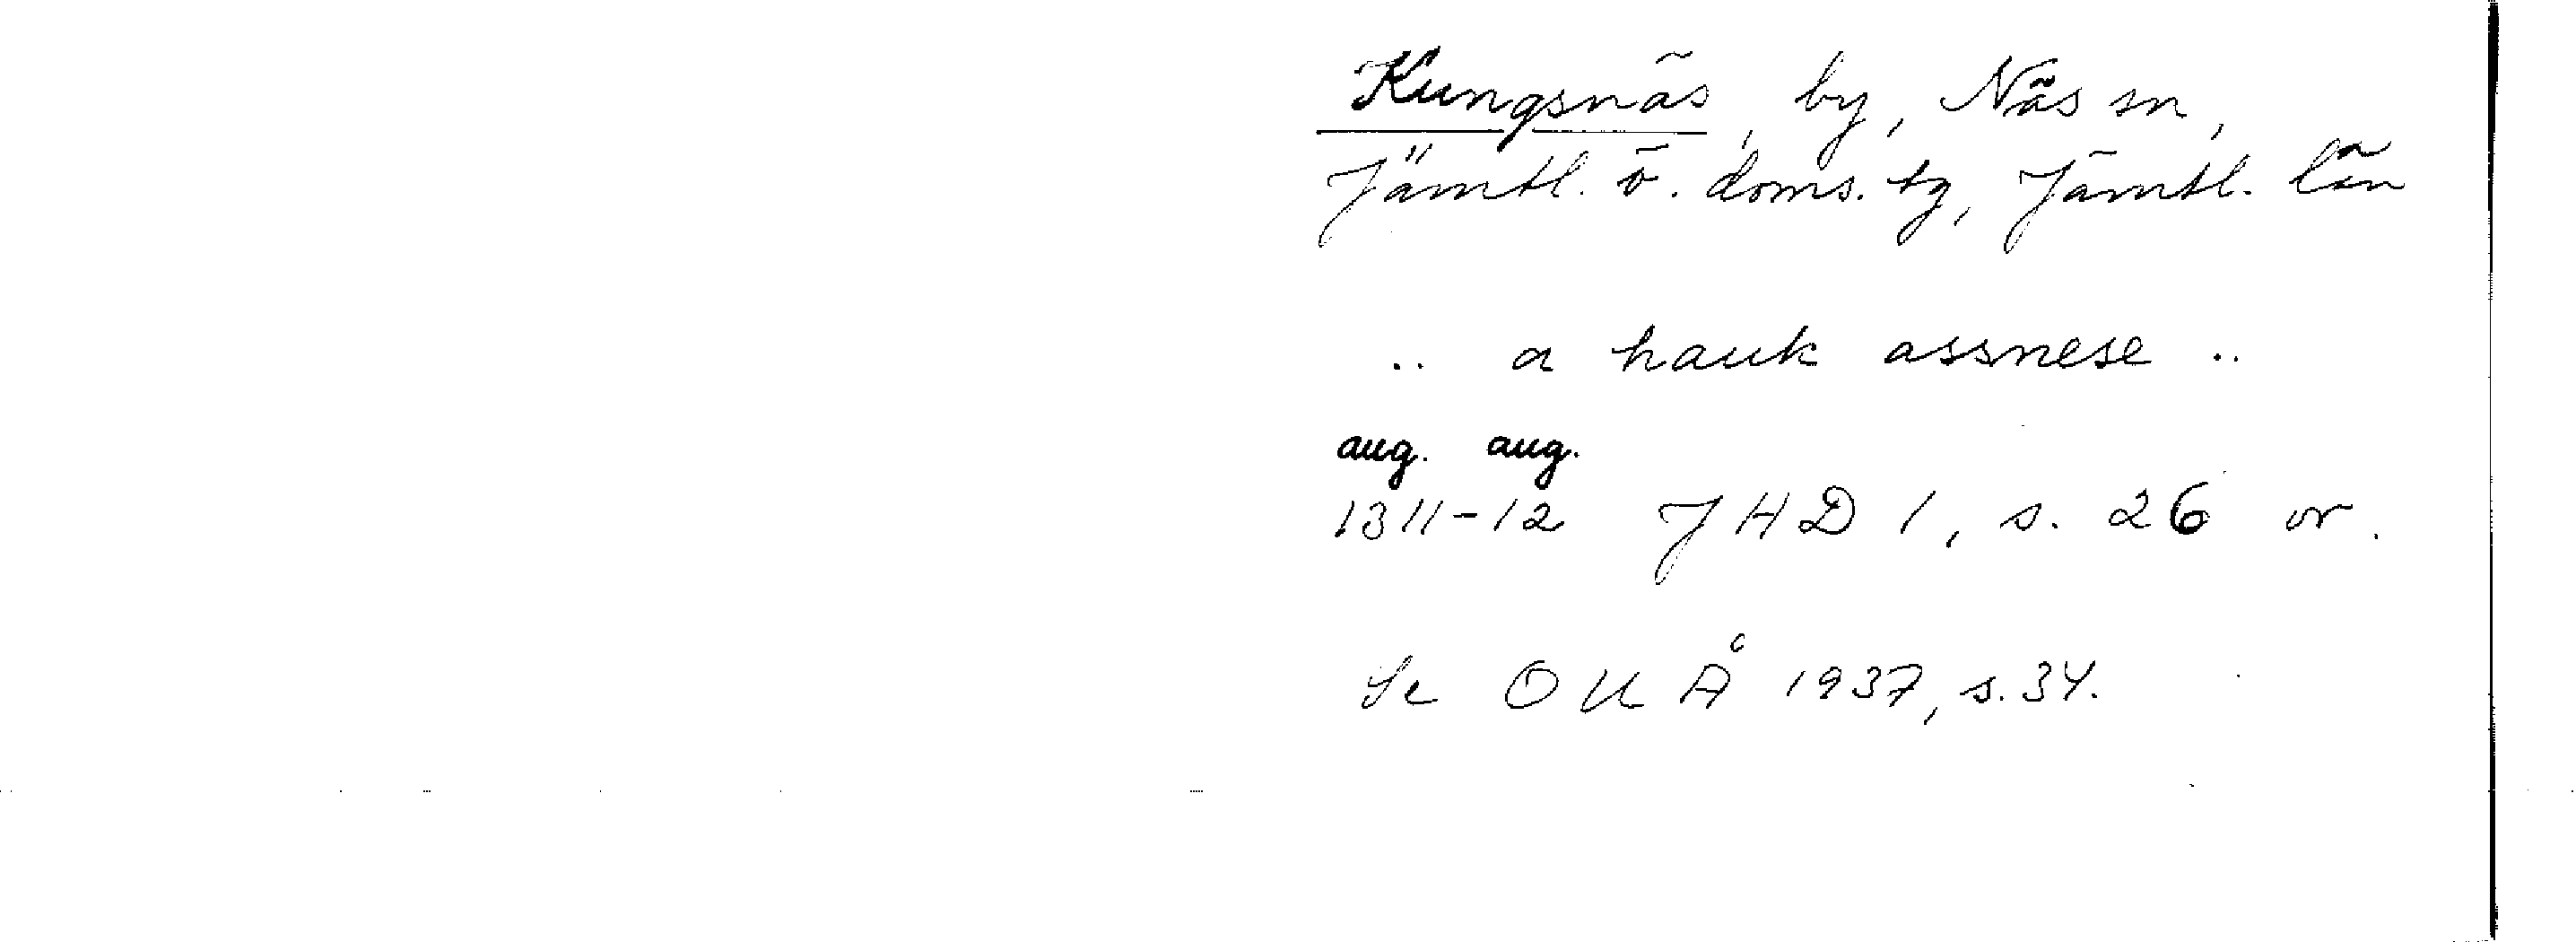 Kungsnäs, by, Näs sn,
Jämtl. ö. doms. tg, Jämtl. län
.. a hauk assnese ..
aug. aug.
1311-12 JHD 1, s. 26 or.
Se OUÅ 1937, s. 34.